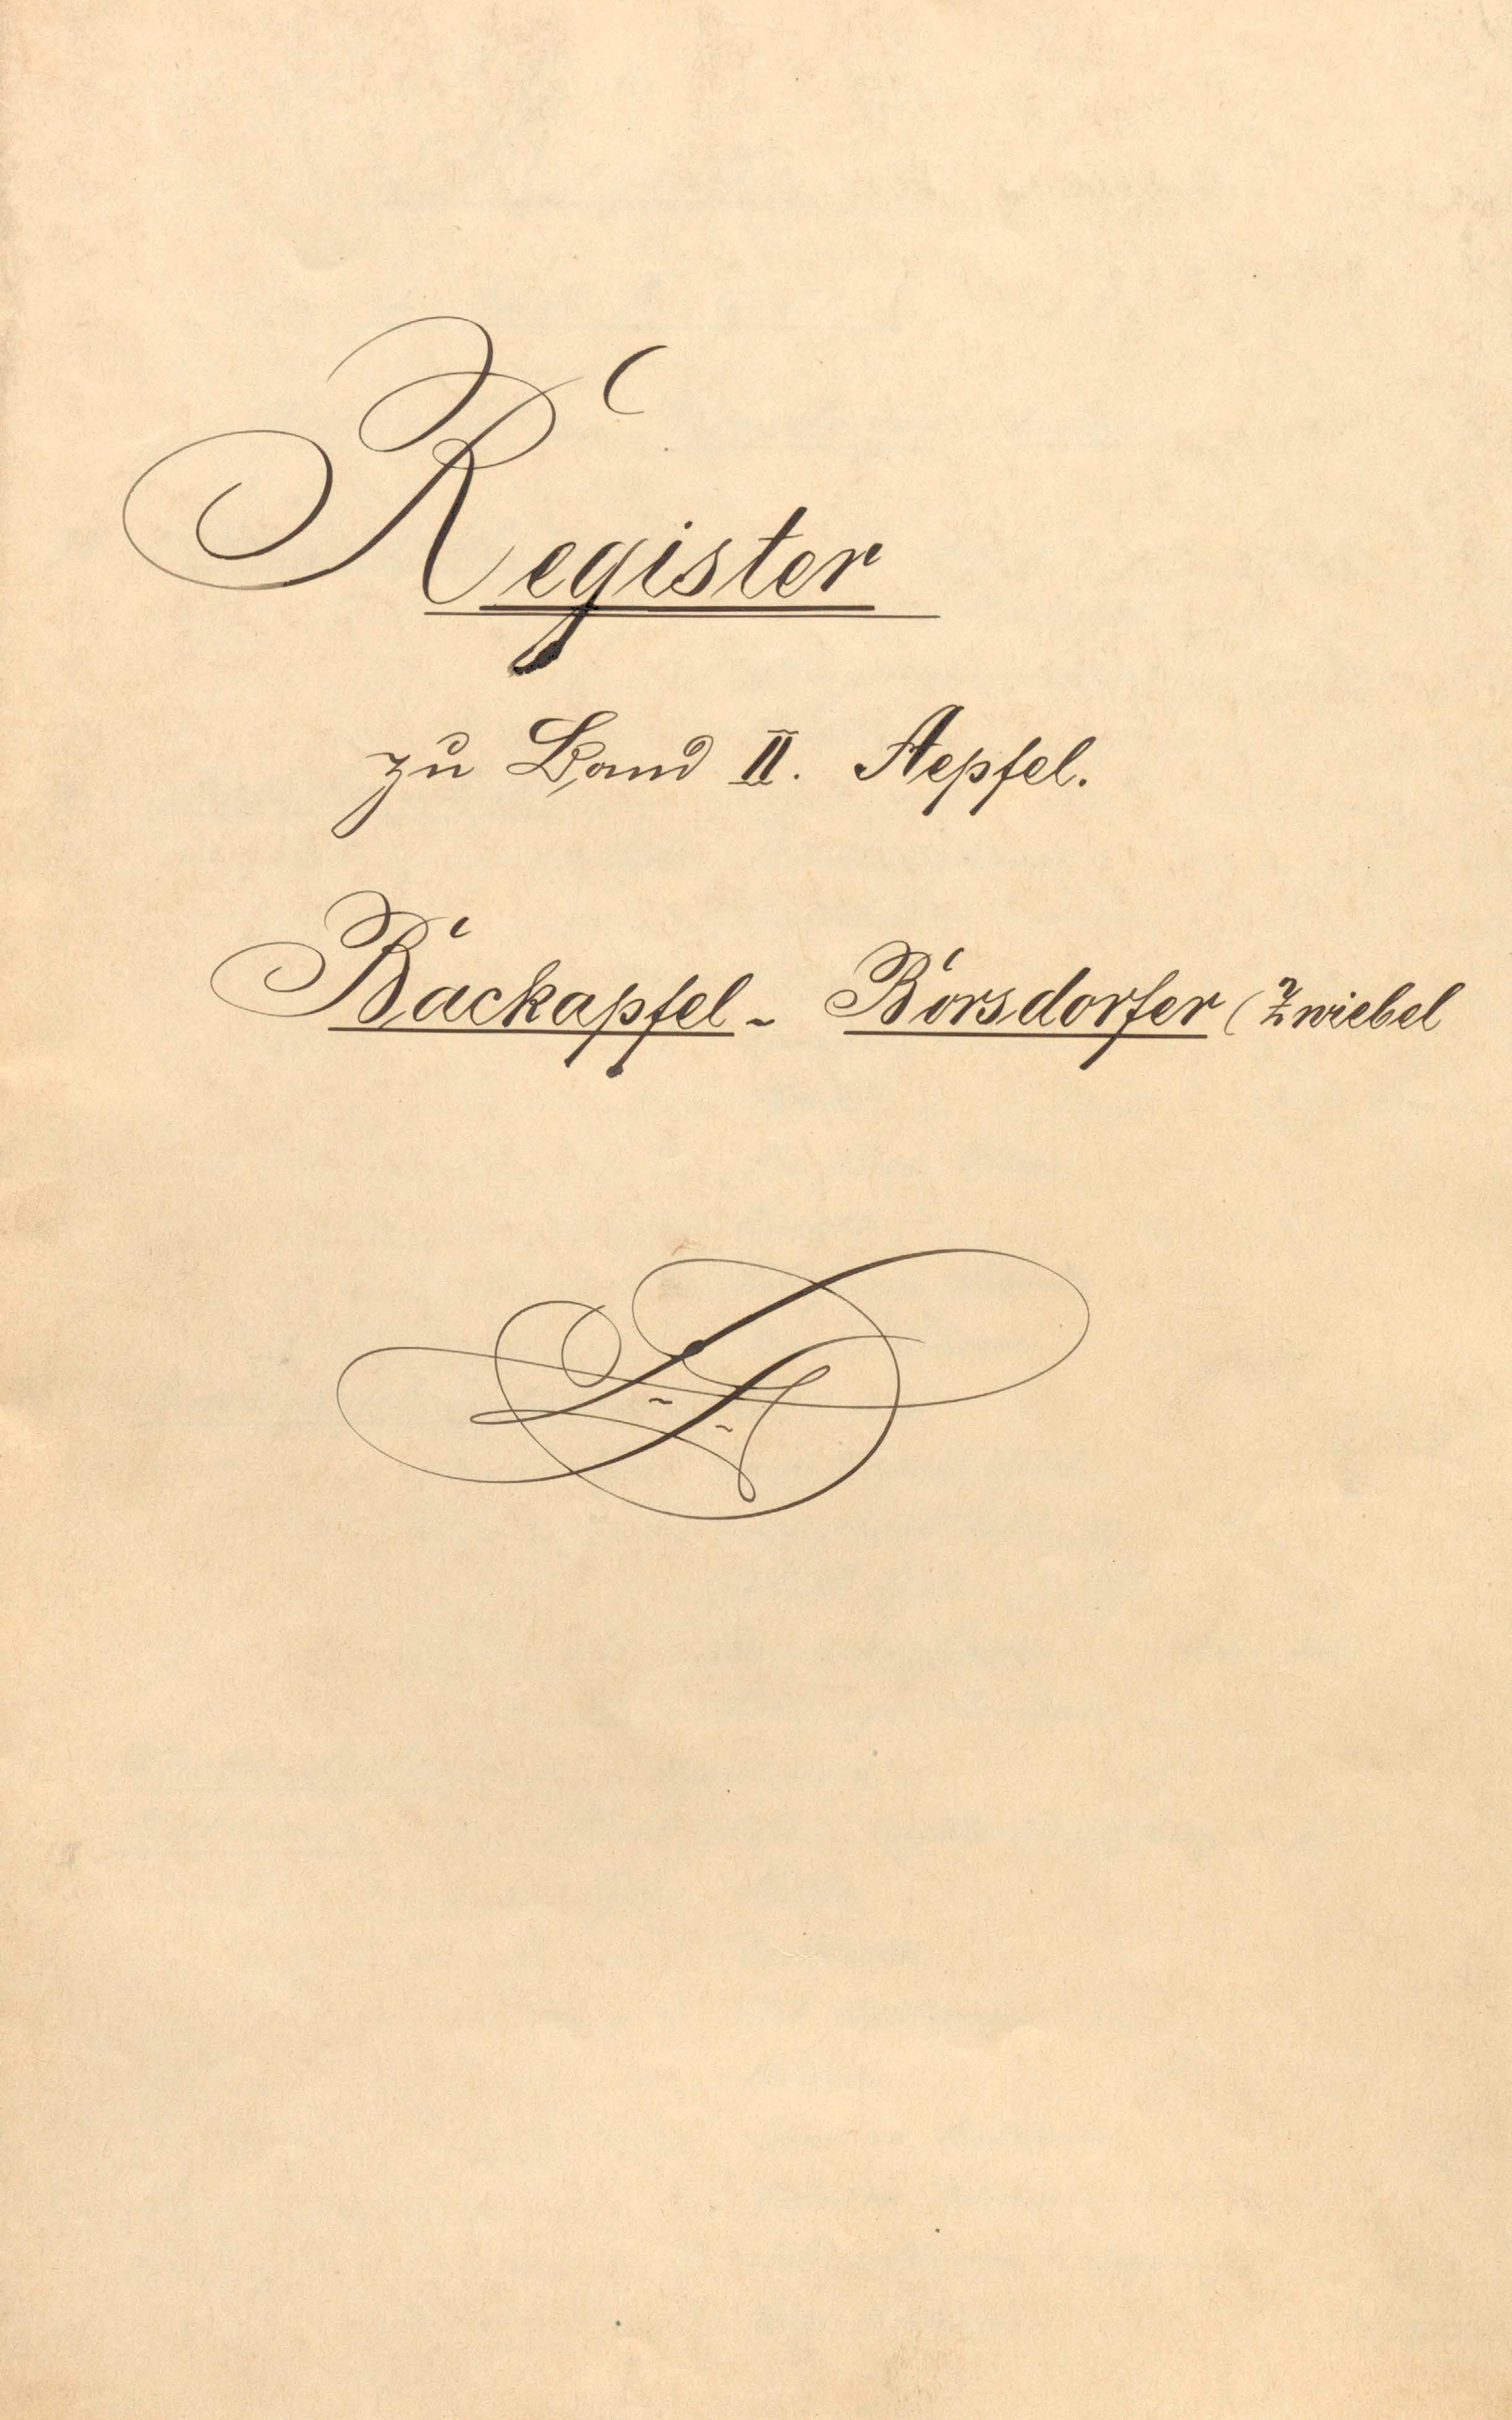 Register
zu Band II. Aepfel.
Backapfel - Borsdorfer (Zwiebel